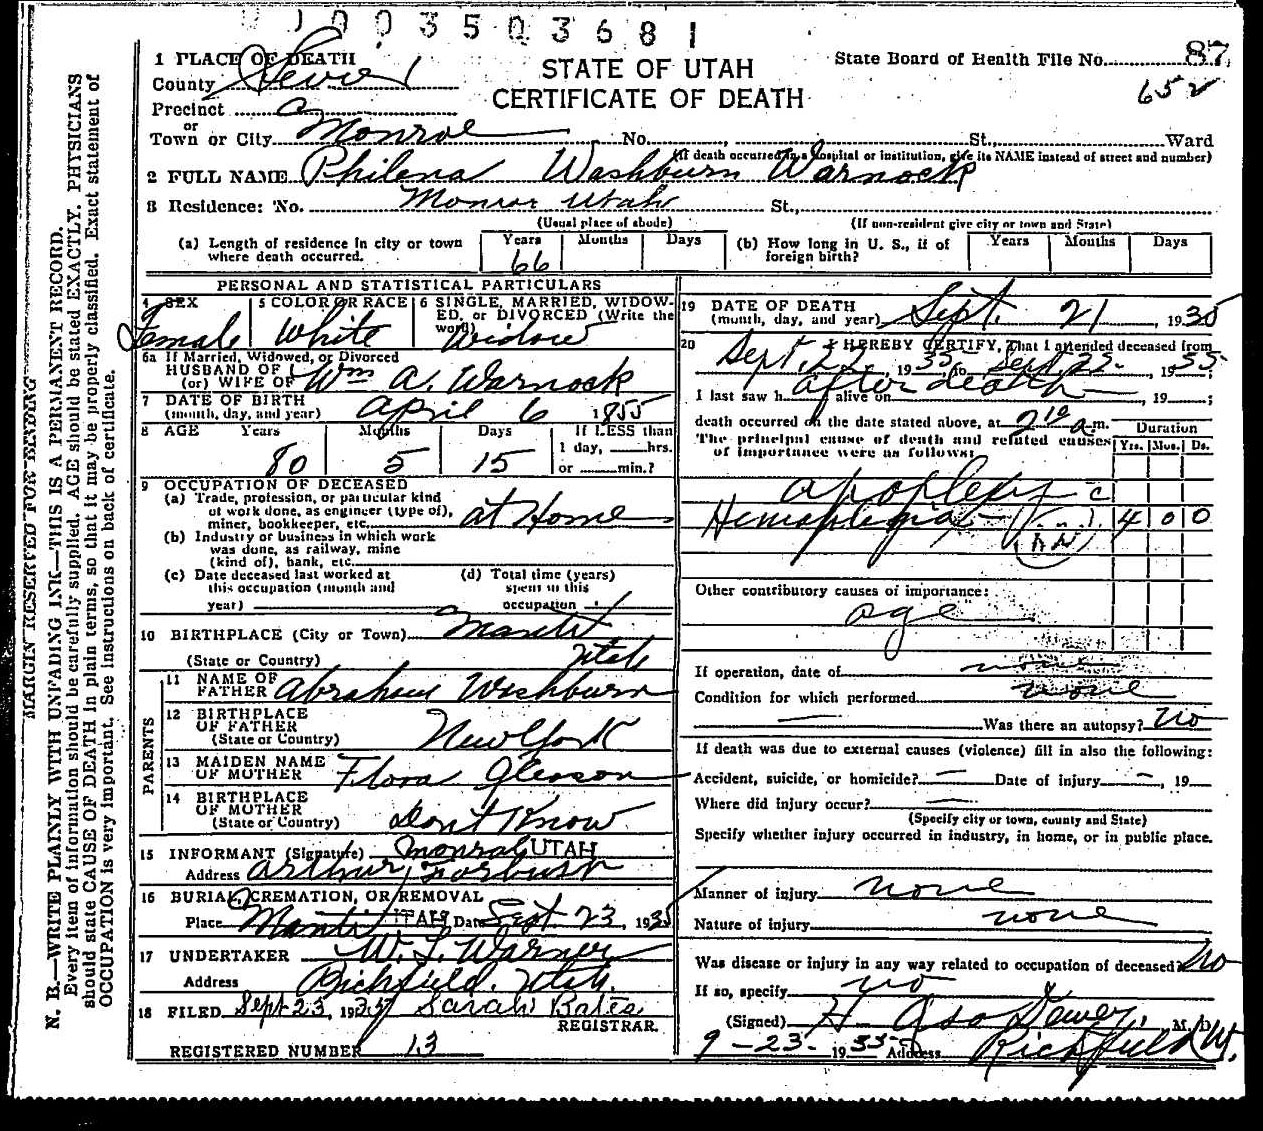 0 1 0 0 3 5 0 3 6 8 1
1 PLACE OF DEATH
County Sevier
STATE OF UTAH
CERTIFICATE OF DEATH
State Board of Health File No. 87
652
Precinct
or
Town or City Monroe No. , St., Ward
(If death occurred in a hospital or institution, give its NAME instead of street and number)
2 FULL NAME Philena Washburn Warnock
3 Residence: No. Monroe Utah St.,
(Usual place of abode) (If non-resident give city or town and State)
(a) Length of residence in city or town where death occurred. Years 66 Months Days
(b) How long in U. S., if of foreign birth? Years Months Days
PERSONAL AND STATISTICAL PARTICULARS
4 SEX Female
5 COLOR OR RACE White
6 SINGLE, MARRIED, WIDOWED, or DIVORCED (Write the word) Widow
6a If Married, Widowed, or Divorced
HUSBAND OF
(or) WIFE OF Wm A. Warnock
7 DATE OF BIRTH
(month, day, and year) April 6 1855
8 AGE Years 80 Months 5 Days 15 If LESS than 1 day, hrs. or min.?
9 OCCUPATION OF DECEASED
(a) Trade, profession, or particular kind of work done, as engineer (type of), miner, bookkeeper, etc. at Home
(b) Industry or business in which work was done, as railway, mine (kind of), bank, etc.
(c) Date deceased last worked at this occupation (month and year)
(d) Total time (years) spent in this occupation
10 BIRTHPLACE (City or Town) Manti
(State or Country) Utah
PARENTS
11 NAME OF FATHER Abraham Washburn
12 BIRTHPLACE OF FATHER
(State or Country) New York
13 MAIDEN NAME OF MOTHER Flora Gleason
14 BIRTHPLACE OF MOTHER
(State or Country) Dont Know
15 INFORMANT (Signature) Monroe UTAH
Address Arthur Forbush
16 BURIAL, CREMATION, OR REMOVAL
Place Manti UTAH Date Sept. 23, 1935
17 UNDERTAKER W. L. Warner
Address Richfield, Utah.
18 FILED Sept 23, 1935 Sarah Bates
REGISTRAR.
REGISTERED NUMBER 13
19 DATE OF DEATH
(month, day, and year) Sept. 21, 1935
20 I HEREBY CERTIFY, That I attended deceased from
Sept. 22, 1935, to Sept. 22, 1935;
I last saw h alive on after death, 19 ;
death occurred on the date stated above, at 2 10 a.m.
The principal cause of death and related causes of importance were as follows:
Duration
Yrs. Mos. Ds.
apoplexy c
Hemiplegia 4 0 0
Other contributory causes of importance:
age
If operation, date of none
Condition for which performed none
Was there an autopsy? No
If death was due to external causes (violence) fill in also the following:
Accident, suicide, or homicide? — Date of injury — , 19
Where did injury occur? —
(Specify city or town, county and State)
Specify whether injury occurred in industry, in home, or in public place.
Manner of injury none
Nature of injury none
Was disease or injury in any way related to occupation of deceased? No
If so, specify no
(Signed) H. Asa Dewey, M. D.
9-23- 1935- Address Richfield Ut.
MARGIN RESERVED FOR BINDING
N. B.—WRITE PLAINLY WITH UNFADING INK—THIS IS A PERMANENT RECORD.
Every item of information should be carefully supplied. AGE should be stated EXACTLY. PHYSICIANS
should state CAUSE OF DEATH in plain terms, so that it may be properly classified. Exact statement of
OCCUPATION is very important. See instructions on back of certificate.